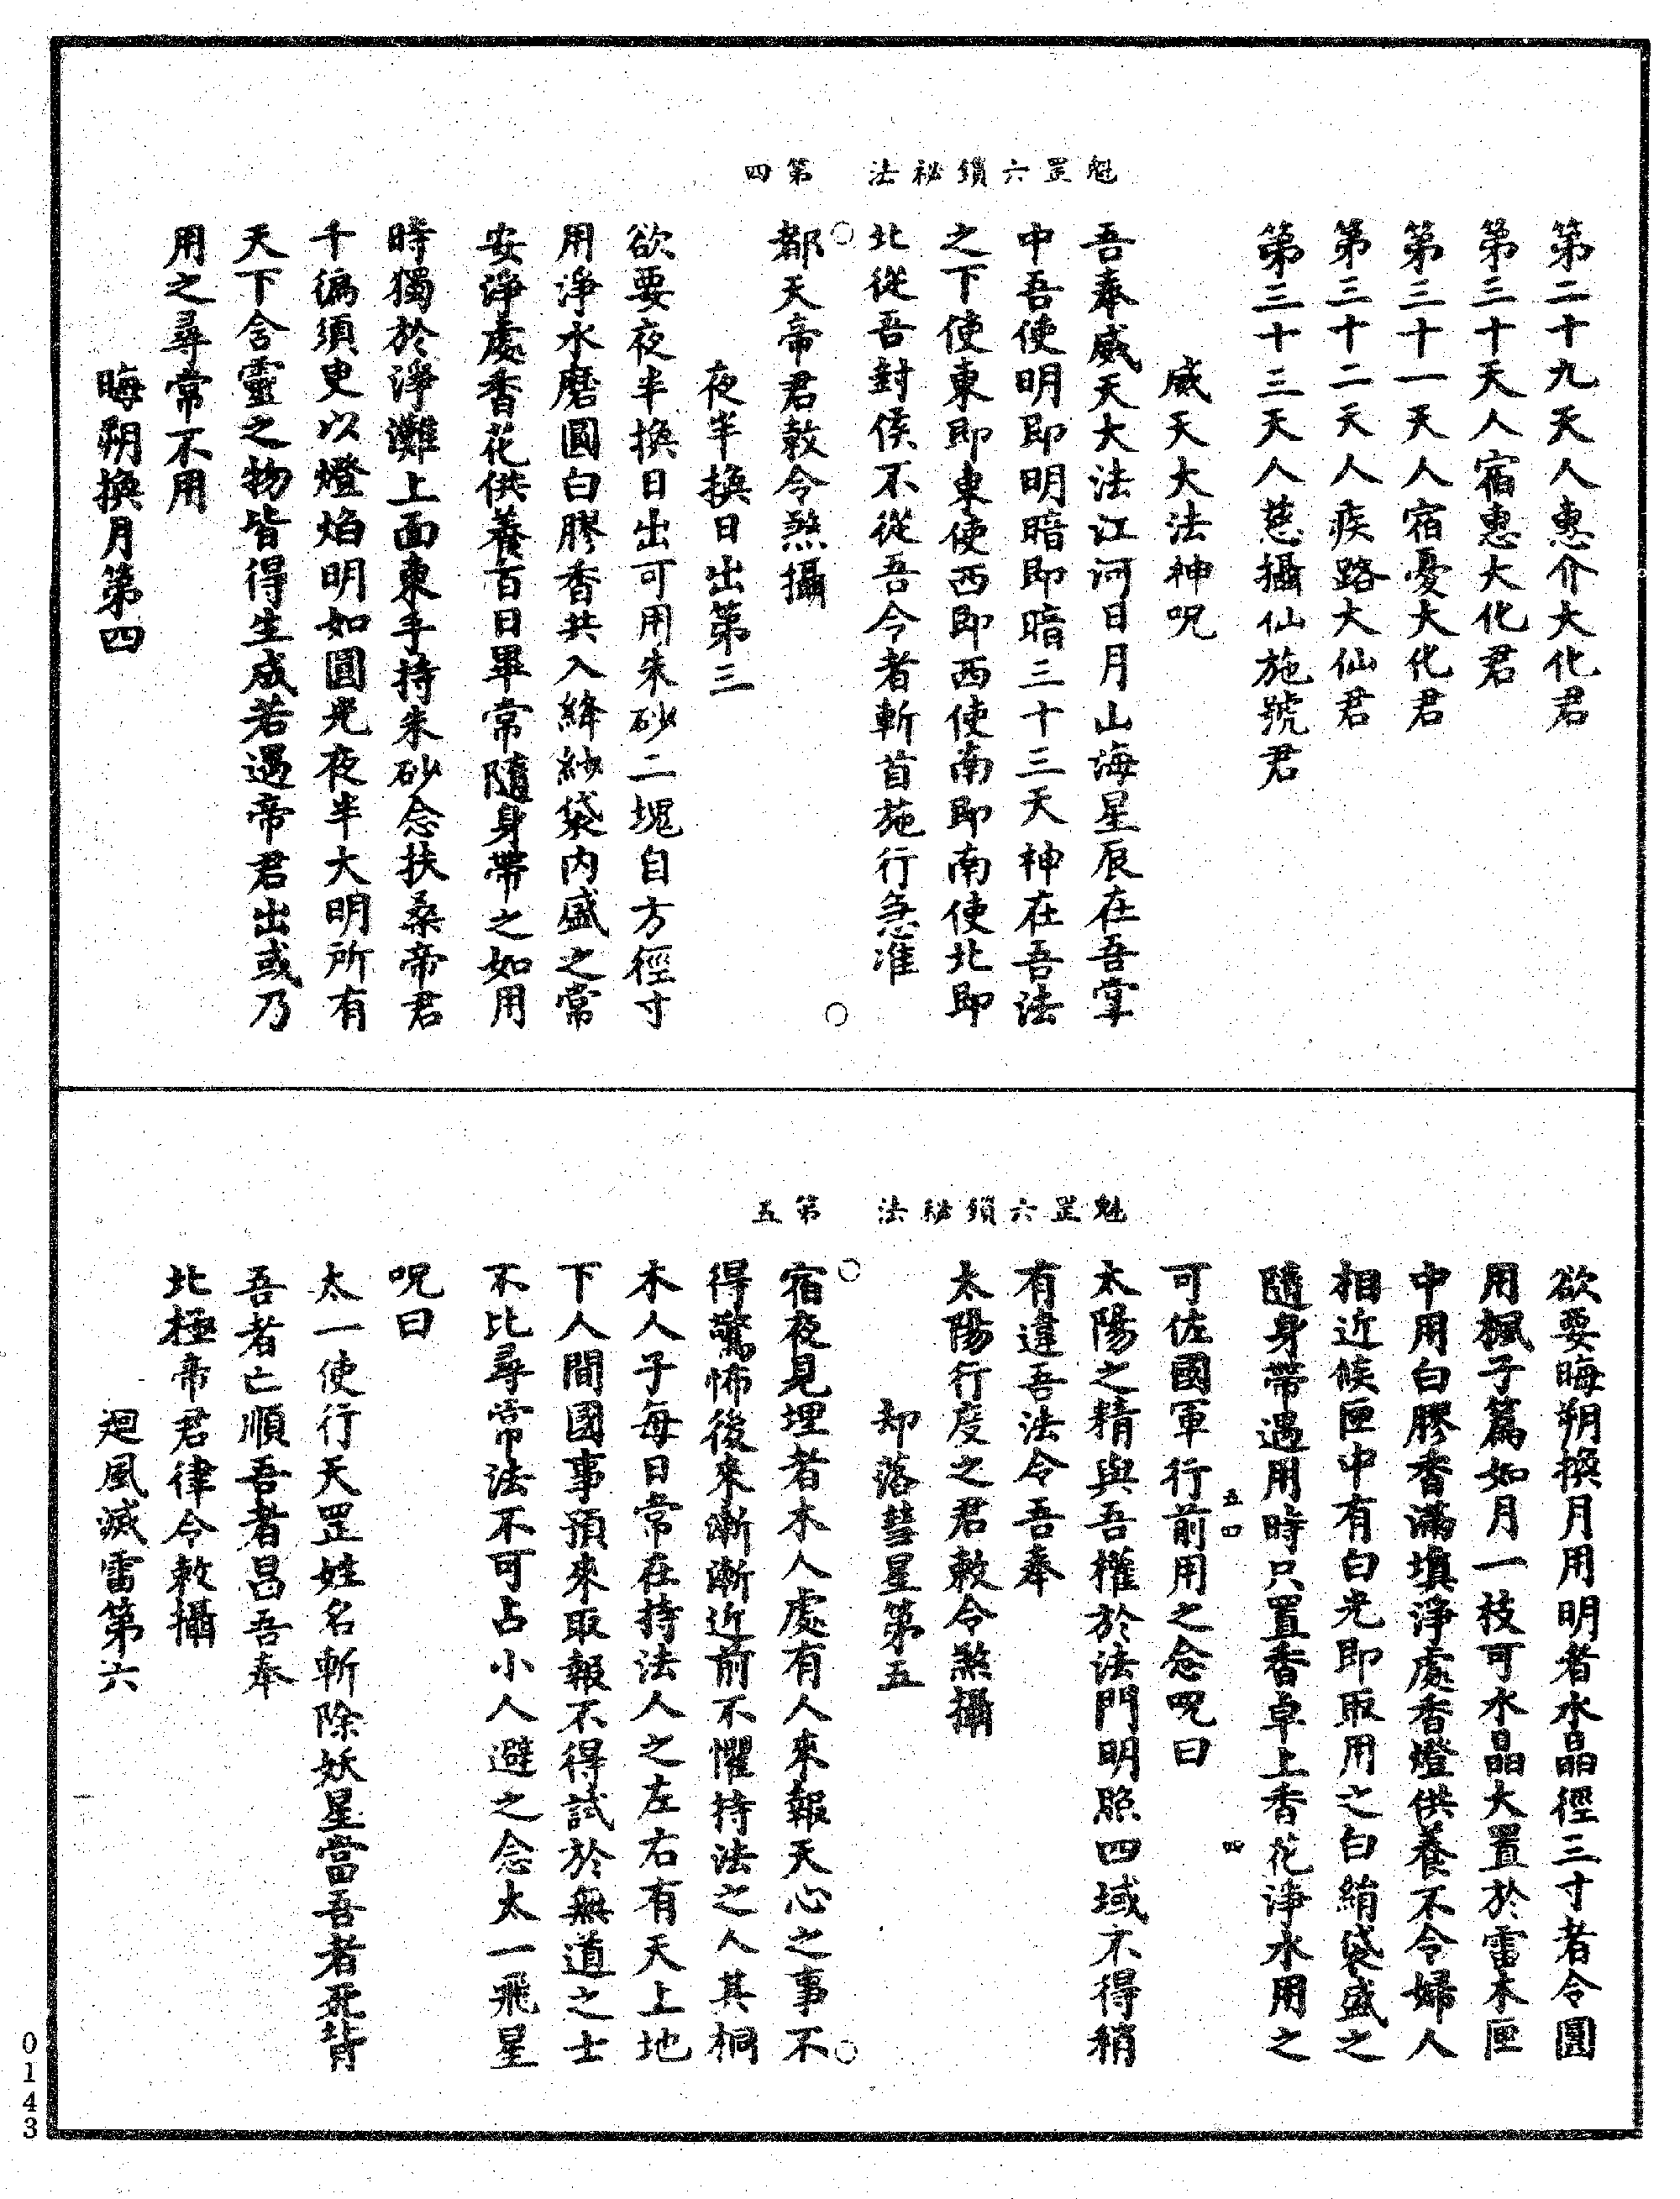 魁罡六鎖祕法　第四
第二十九天人惠介大化君
第三十天人宿惠大化君
第三十一天人宿憂大化君
第三十二天人疾路大仙君
第三十三天人慈攝仙施號君
威天大法神呪
吾奉威天大法江河日月山海星辰在吾掌
中吾使明即明暗即暗三十三天神在吾法
之下使東即東使西即西使南即南使北即
北從吾封侯不從吾令者斬首施行急准
都天帝君敕令煞攝
夜半換日出第三
欲要夜半換日出可用朱砂二塊自方徑寸
用淨水磨圓白膠香共入絳紗袋內盛之常
安淨處香花供養百日畢常隨身帶之如用
時獨於淨灘上面東手持朱砂念扶桑帝君
千徧須臾以燈焰明如圓光夜半大明所有
天下含靈之物皆得生威若遇帝君出或乃
用之尋常不用
晦朔換月第四
魁罡六鎖祕法　第五
欲要晦朔換月用明者水晶徑三寸者令圓
用楓子篇如月一枝可水晶大置於雷木匣
中用白膠香滿填淨處香燈供養不令婦人
相近候匣中有白光即取用之白絹袋盛之
隨身帶遇用時只置香卓上香花淨水用之
五四　四
可佐國軍行前用之念呪曰
太陽之精與吾權於法門明照四域不得稍
有違吾法令吾奉
太陽行度之君敕令煞攝
却落彗星第五
宿夜見埋者木人處有人來報天心之事不
得驚怖後來漸漸近前不懼持法之人其桐
木人子每日常在持法人之左右有天上地
下人間國事預來取報不得試於無道之士
不比尋常法不可占小人避之念太一飛星
呪曰
太一使行天罡姓名斬除妖星當吾者死背
吾者亡順吾者昌吾奉
北極帝君律令敕攝
迴風滅雷第六
0143